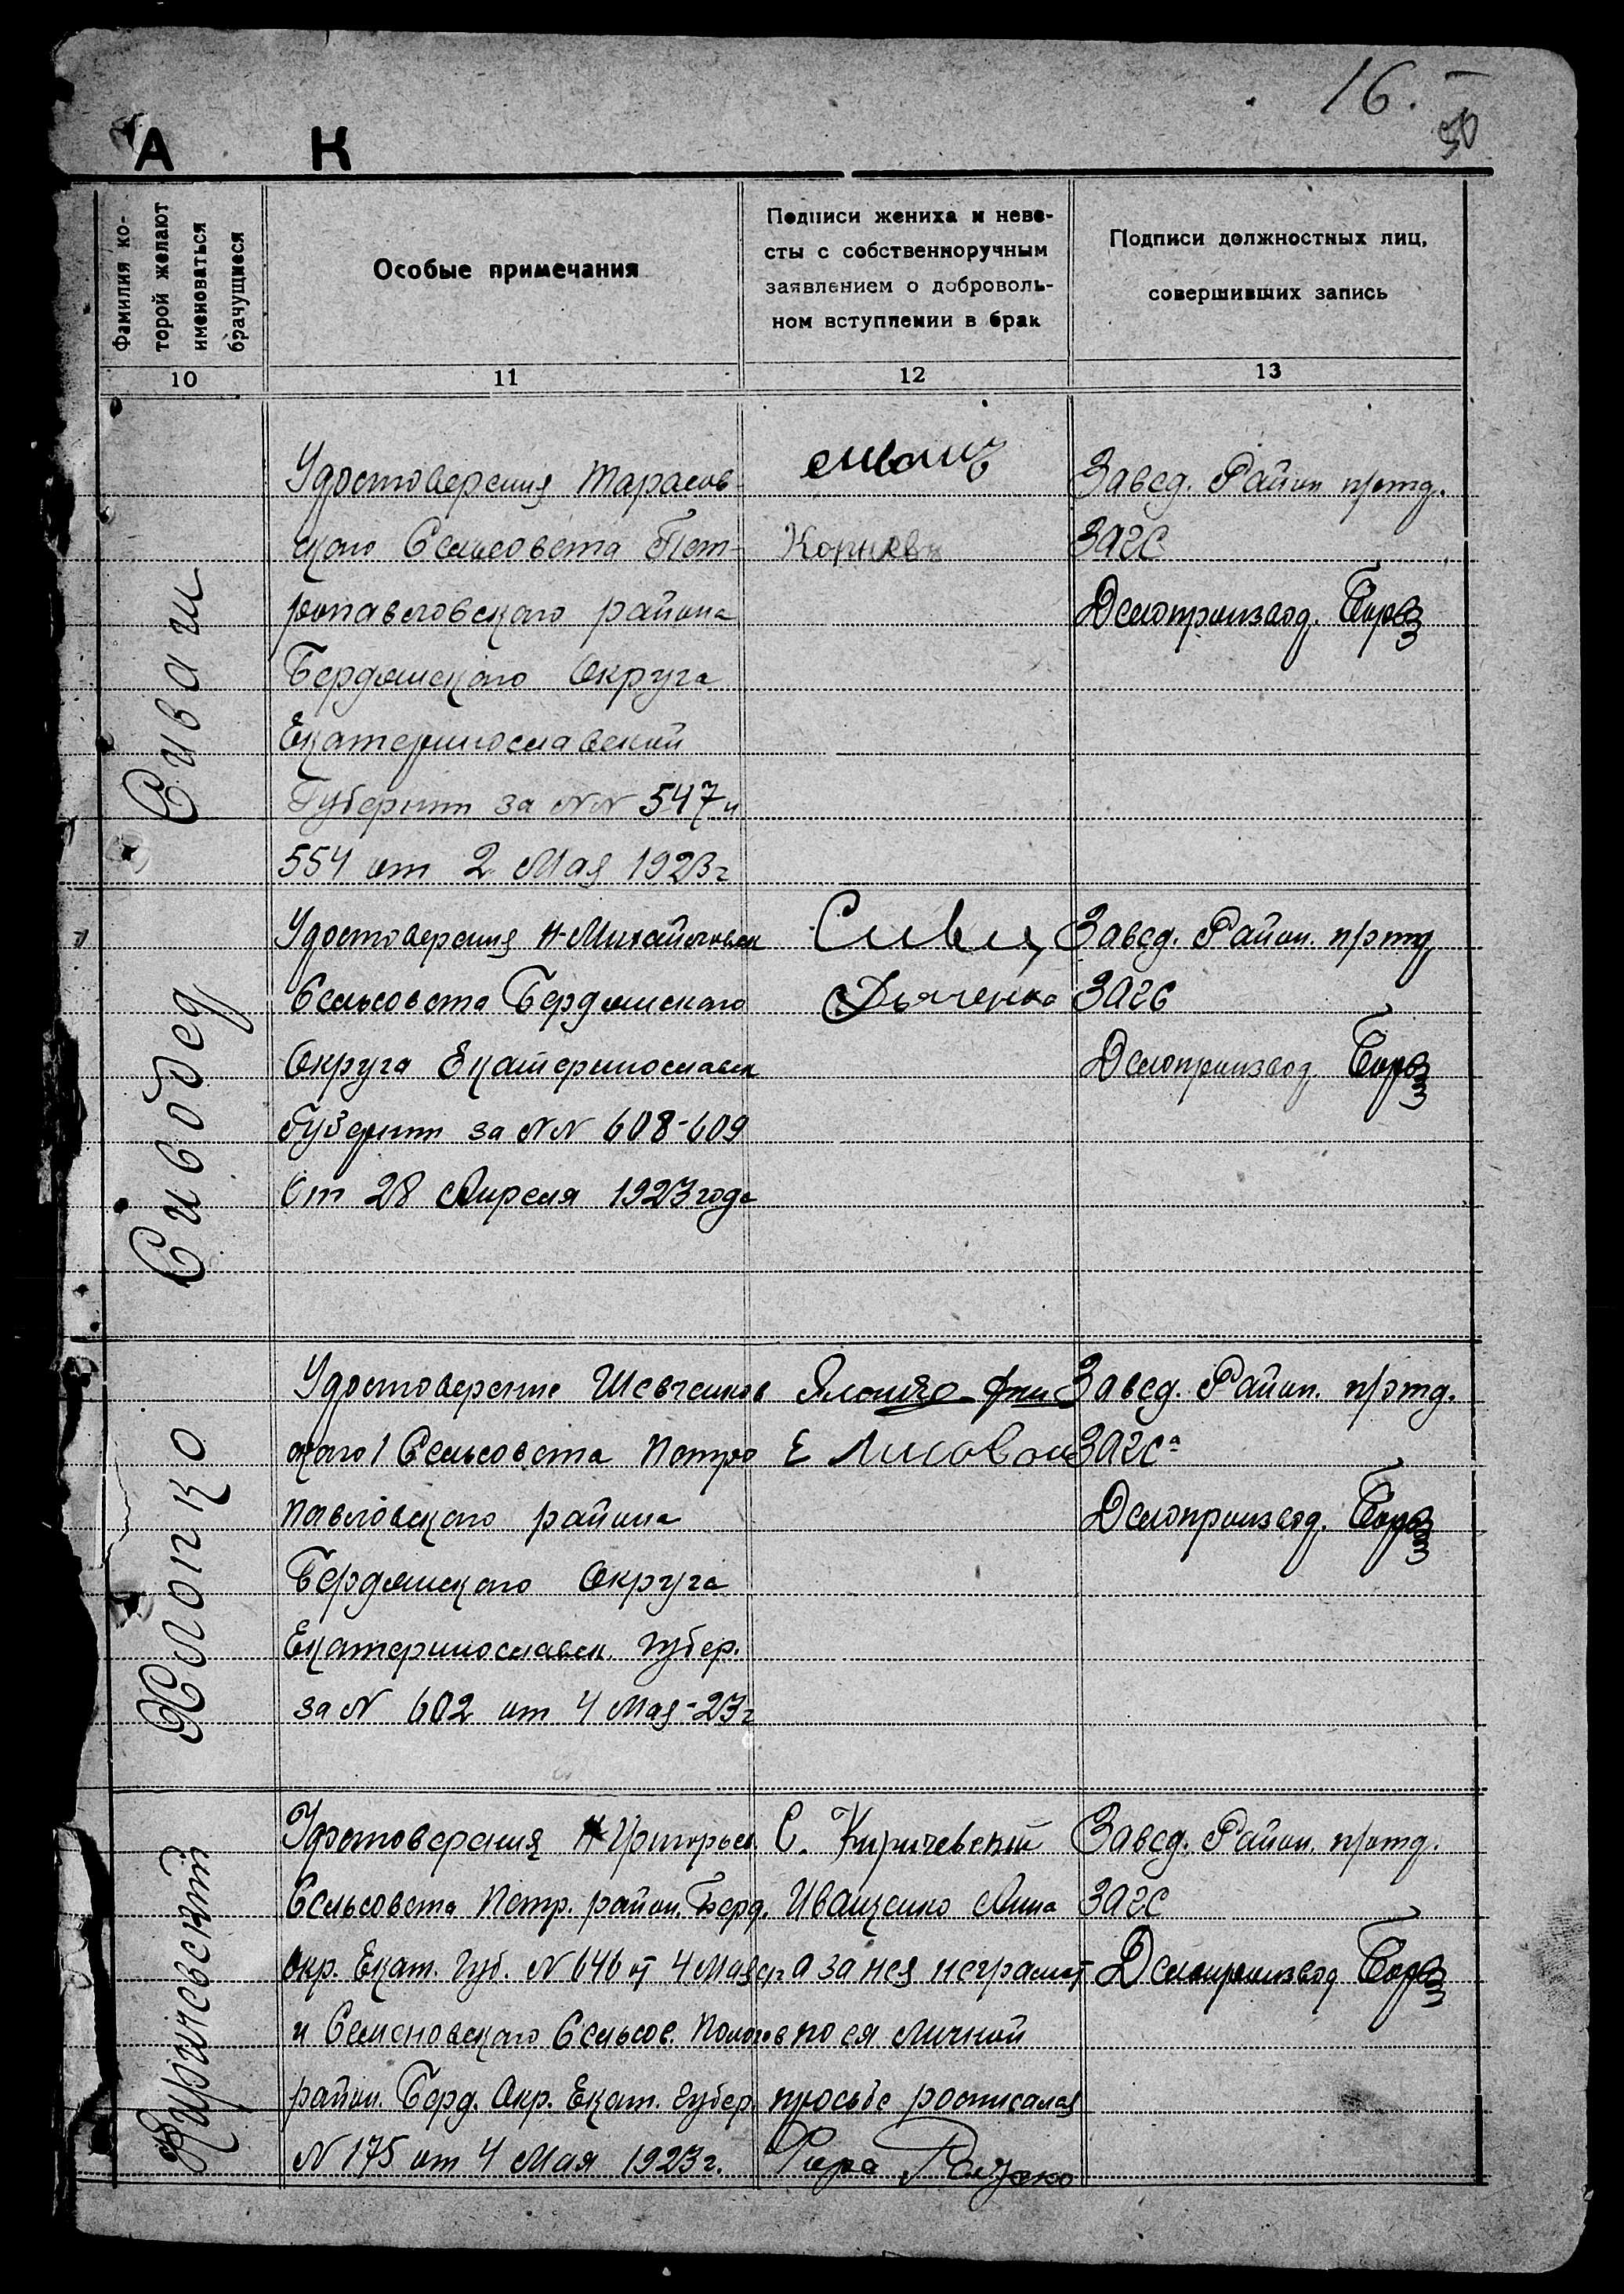 16.
50
А К
Фамилия ко-
торой желают
именоваться
брачущиеся
Особые примечания
Подписи жениха и неве-
сты с собственноручным
заявлением о доброволь-
ном вступлении в брак
Подписи должностных лиц,
совершивших запись
10
11
12
13
Сиваш
Удостоверения Тарасов-
скаго Сельсовета Пет-
ропавловскаго района
Бердянскаго Округа
Екатеринославской
Губернии за NN 547 и
554 от 2 Мая 1923 г
Корнева
Завед. Район п/отд.
ЗАГС
Делопроизвод.
Сиводед
Удостоверения Н-Михайловск
Сельсовета Бердянскаго
Округа Екатеринославск
Губернии за NN 608-609
От 28 Апреля 1923 года
Дьяченко
Завед. Район. п/отд
ЗАГС
Делопроизвод.
Хлопко
Удостоверение Шевченков
скаго 1 Сельсовета Петро
павловскаго района
Бердянскаго Округа
Екатеринославск. губер.
за N 602 от 4 Мая-23 г
Е Лисовои
Завед. Район. п/отд.
ЗАГСа
Делопроизвод.
Киричевский
Удостоверения Н-Григорьев.
Сельсовета Петр. район. Берд.
Окр. Екат. Губ. N 646 от 4 Мая
и Семеновскаго Сельсов. Пологов
район. Берд. Окр. Екат. губер
N 175 от 4 Мая 1923 г.
С. Киричевский
Иващенко Анна
а за нея неграмот
по ея личной
просьбе росписалася
Завед. Район. п/отд.
ЗАГС
Делопроизвод